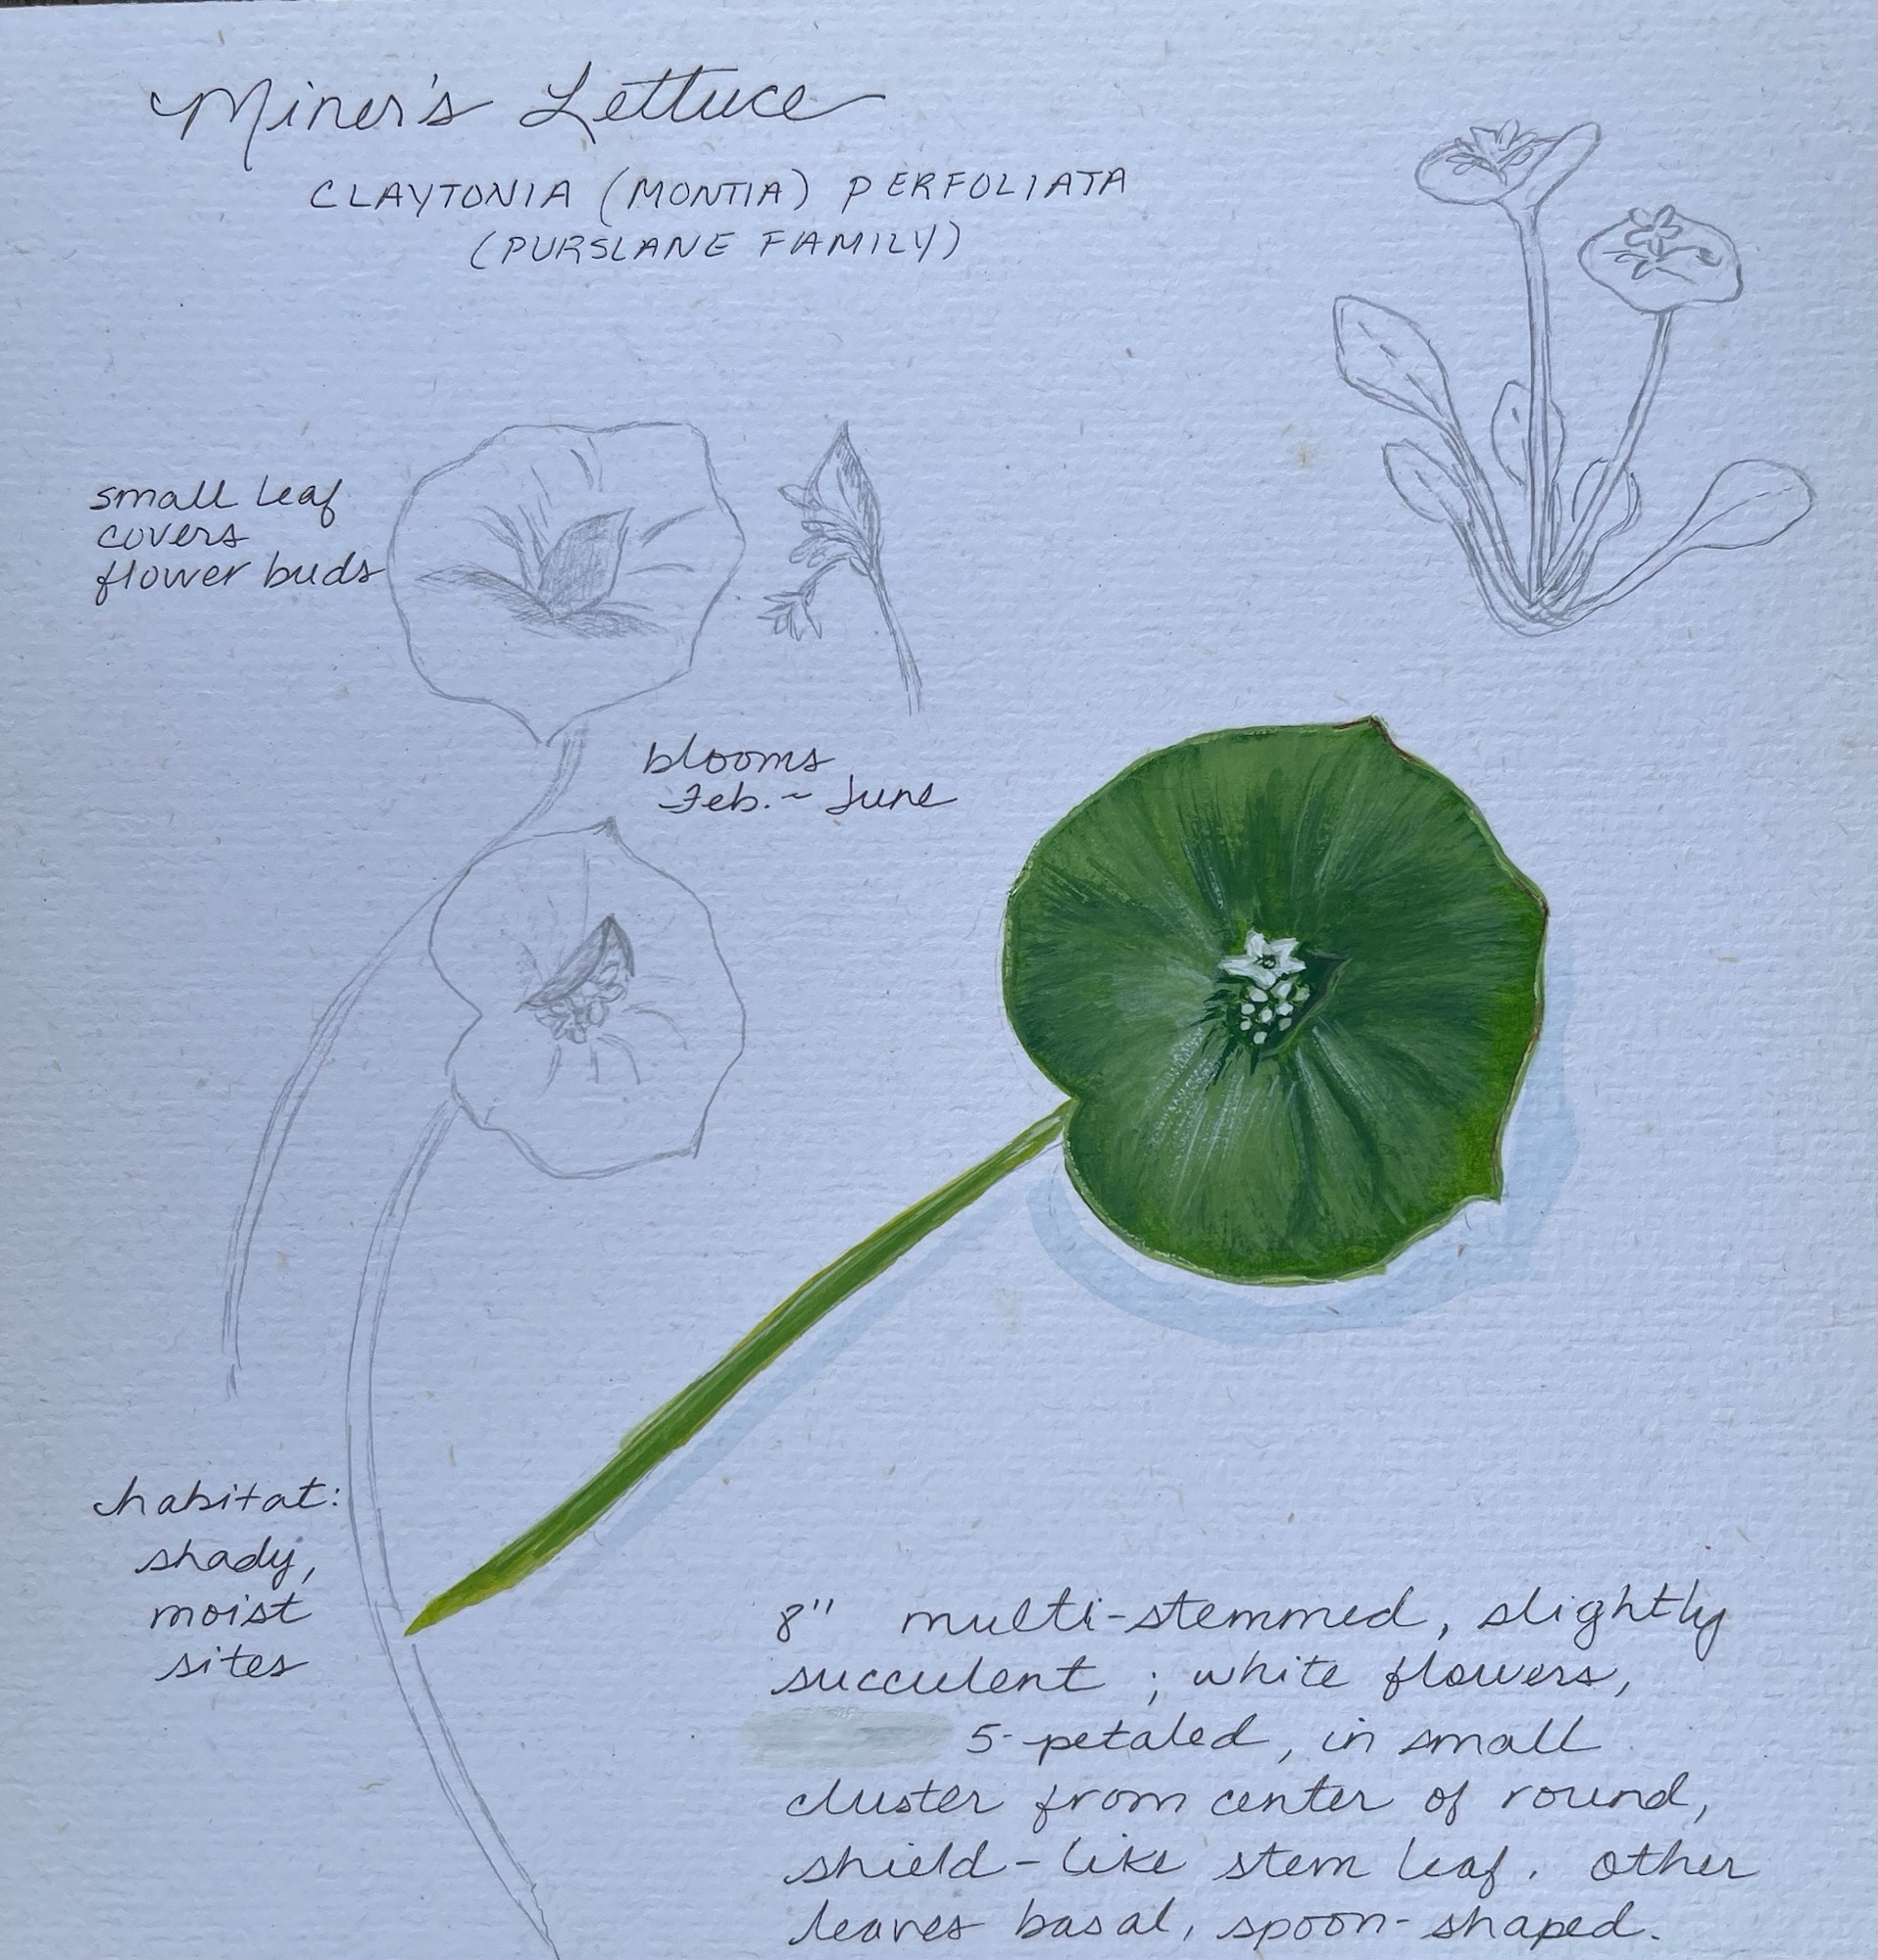 Miner's Lettuce
CLAYTONIA (MONTIA) PERFOLIATA
(PURSLANE FAMILY)
small leaf
covers
flower buds
blooms
Feb. ~ June
habitat:
shady,
moist
sites
8" multi-stemmed, slightly
succulent ; white flowers,
5-petaled, in small
cluster from center of round,
shield-like stem leaf. other
leaves basal, spoon-shaped.